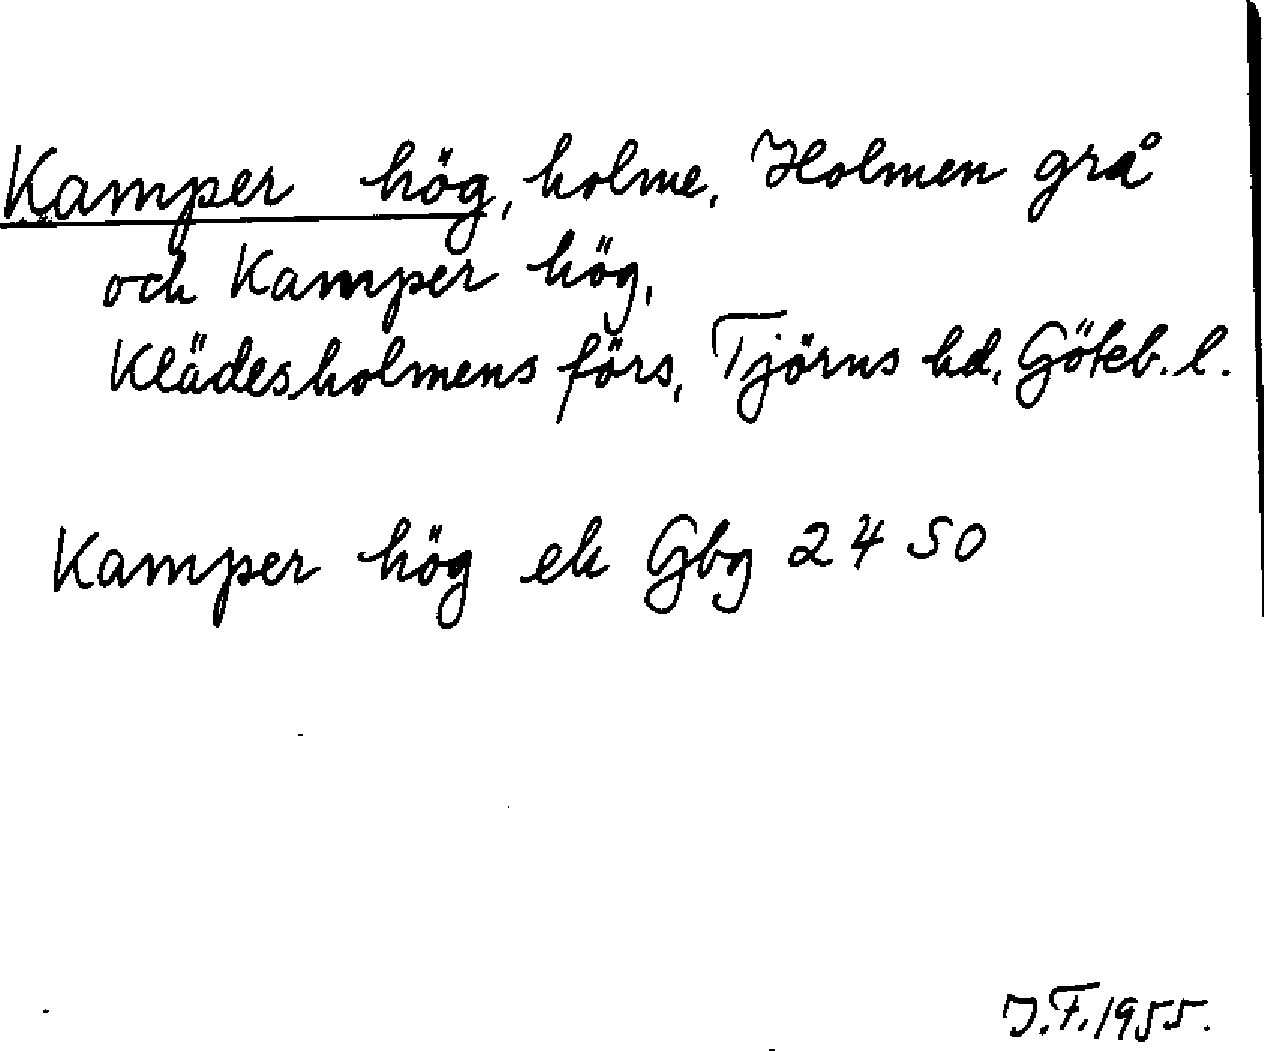 Kamper hög, holme, Holmen grå
och Kamper hög,
Klädesholmens förs, Tjörns hd, Göteb. l.
Kamper hög ek Gbg 2450
J.F. 1955.